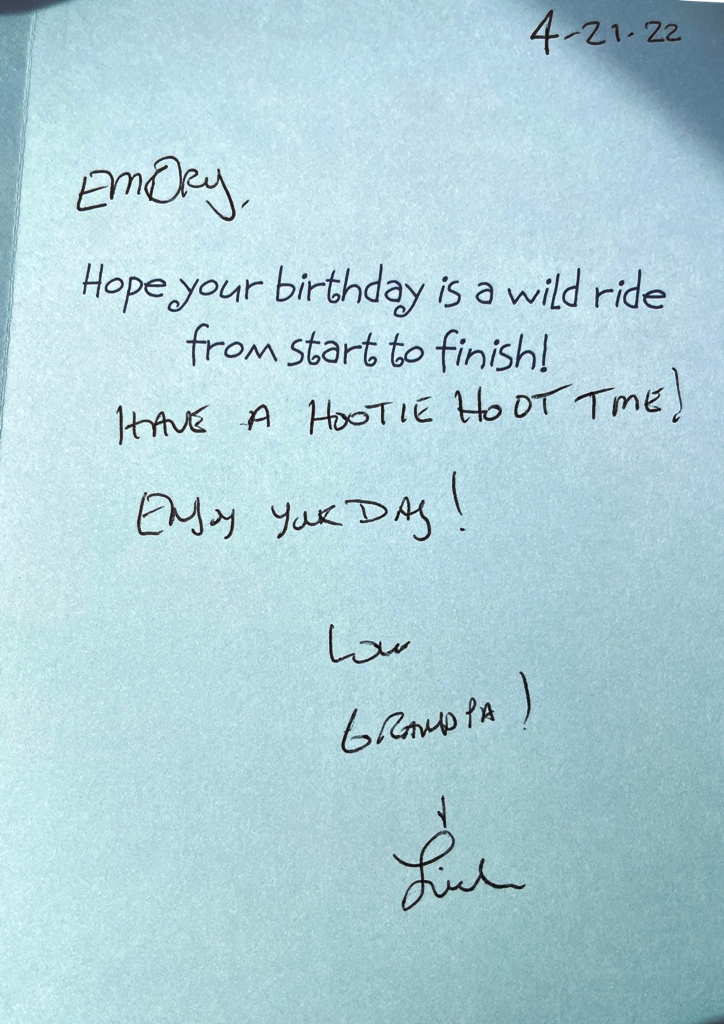 4-21-22
Emory,
Hope your birthday is a wild ride
from start to finish!
HAVE A HOOTIE HOOT TME!
Enjoy your DAy!
Love
GRANDPA!